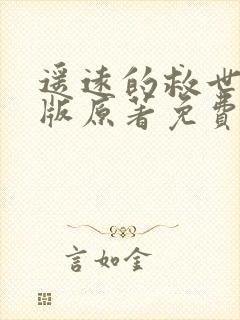 遥远的救世
版原著免費
言如金